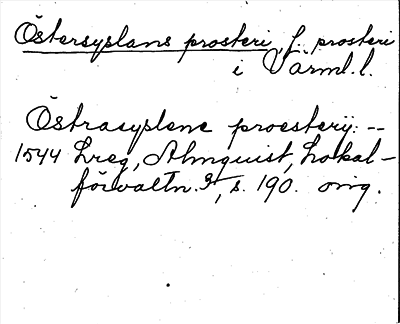 Östersyslans prosteri, f. prosteri
i Värml. l.
Östrasyslene proesterij: --
1544 Lreg, Almquist, Lokal-
förvaltn. 3, s. 190. orig.